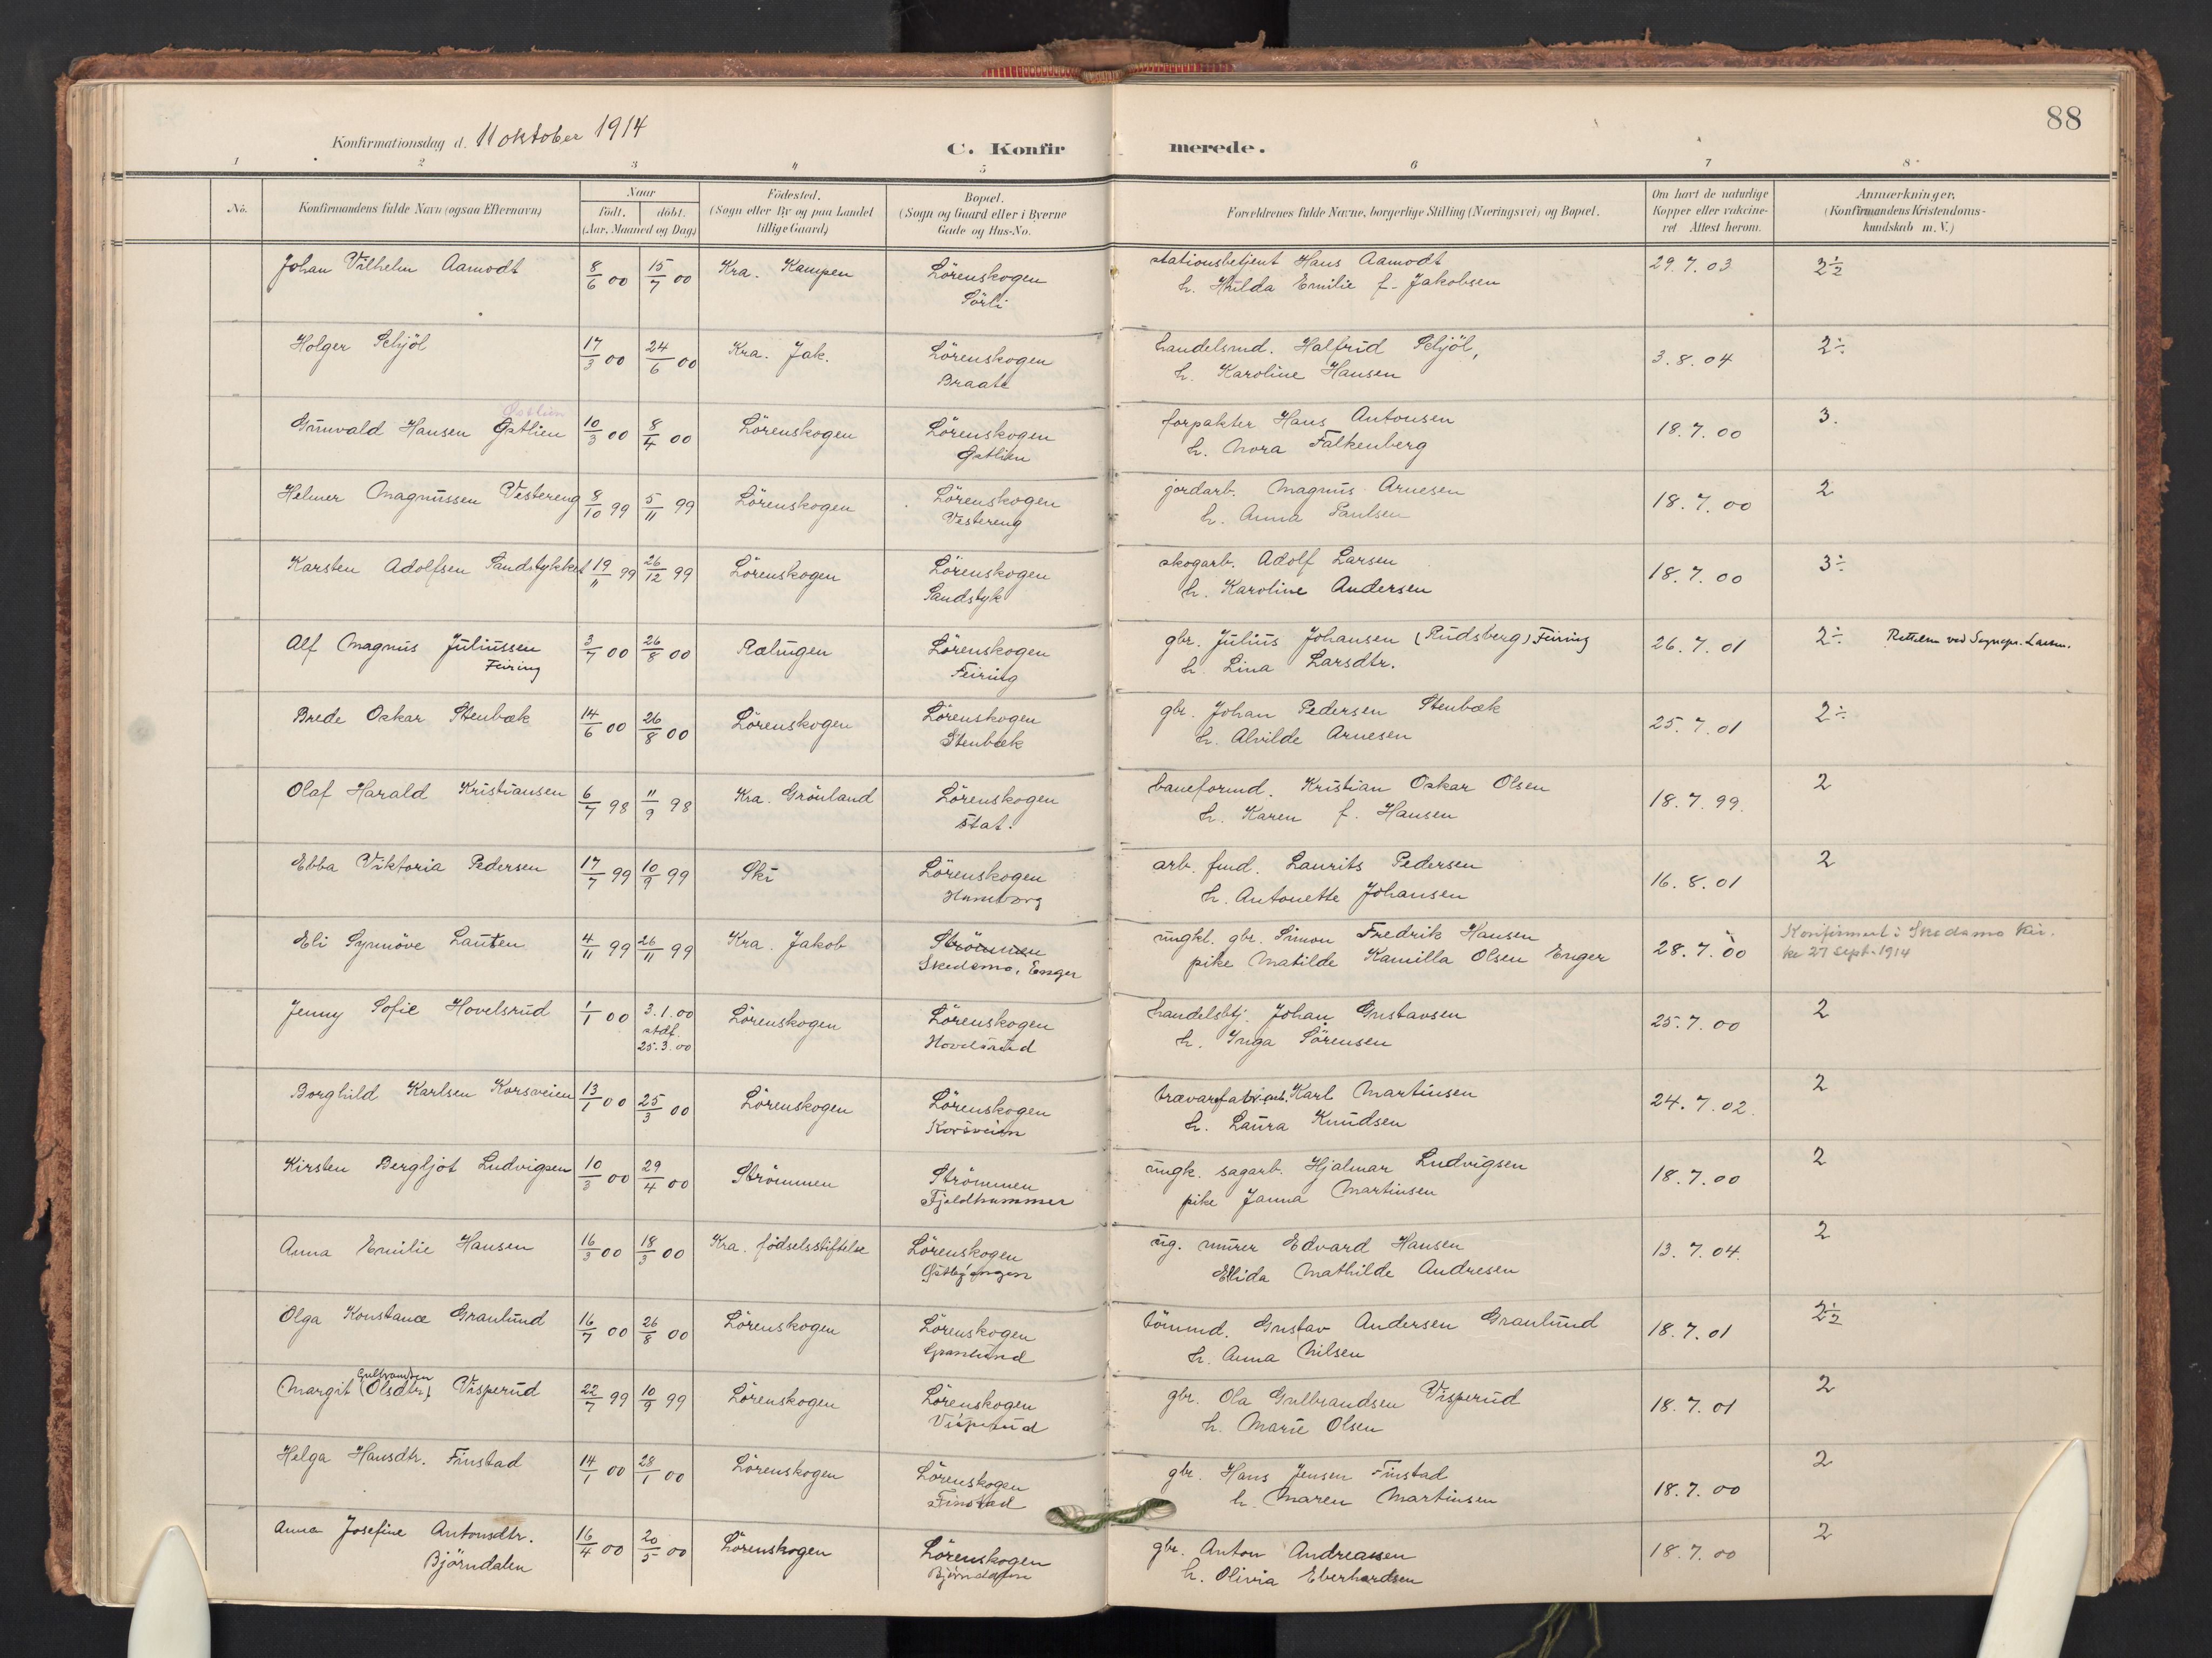 88
Konfirmationsdag d. 11 oktober 1914
C. Konfirmerede.
1 2 3 4 5 6 7 8
No.
Konfirmandens fulde Navn (ogsaa Efternavn)
Naar
født. døbt.
(Aar, Maaned og Dag)
Födested.
(Sogn eller By og paa Landet
tillige Gaard)
Bopæl.
(Sogn og Gaard eller i Byerne
Gade og Hus-No.
Forældrenes fulde Navne, borgerlige Stilling (Næringsvei) og Bopæl.
Om havt de naturlige
Kopper eller vakcine-
ret Attest herom.
Anmærkninger,
(Konfirmandens Kristendoms-
kundskab m. V.)
Johan Vilhelm Aamodt 8/6 00 15/7 00 Kra. Kampen Lörenskogen stationsbetjent Hans Aamodt 29.7.03 2½
Sörli h. Hulda Emilie f. Jakobsen
Holger Schjöl 17/3 00 24/6 00 Kra. Jak. Lörenskogen handelsmd. Halfrid Schjöl, 3.8.04 2÷
Braate h. Karoline Hansen
Østlien
Grunvald Hansen Østlien 10/3 00 8/4 00 Lörenskogen Lörenskogen forpakter Hans Antonsen 18.7.00 3.
Østlien h. Nora Falkenberg
Helmer Magnussen Vestereng 8/10 99 5/11 99 Lörenskogen Lörenskogen jordarb. Magnus Arnesen 18.7.00 2
Vestereng h. Anna Paulsen
Karsten Adolfsen Sandstykket 19/11 99 26/12 99 Lörenskogen Lörenskogen skogarb. Adolf Larsen 18.7.00 3÷
Sandstyk h. Karoline Andersen
Alf Magnus Juliussen 3/7 00 26/8 00 Rælingen Lörenskogen gbr. Julius Johansen (Rudsberg) Feiring 26.7.01 2÷ Rettelse ved Sognepr. Larsen.
Feiring Feiring h. Lina Larsdtr.
Brede Oskar Stenbæk 14/6 00 26/8 00 Lörenskogen Lörenskogen gbr. Johan Pedersen Stenbæk 25.7.01 2÷
Stenbæk h. Alvilde Arnesen
Olaf Harald Kristiansen 6/7 98 11/9 98 Kra. Grönland Lörenskogen baneformd. Kristian Oskar Olsen 18.7.99. 2
stat. h. Karen f. Hansen
Ebba Viktoria Pedersen 17/7 99 10/9 99 Ski Lörenskogen arb. fmd. Laurits Pedersen 16.8.01 2
Hamborg h. Antonette Johansen
Eli Synnöve Lauten 4/11 99 26/11 99 Kra. Jakob Strömmen ungkl. gbr. Simon Fredrik Hansen 28.7.00 Konfirmert i Skedsmo kir-
Skedsmo, Enger pike Matilde Kamilla Olsen Enger ke 27 sept. 1914
Jenny Sofie Hovelsrud 1/1 00 3.1.00 Lörenskogen Lörenskogen handelsbtj. Johan Gustavsen 25.7.00 2
stdf. 25.3.00 Hovelsrud h. Inga Sörensen
Borghild Karlsen Korsveien 13/1 00 25/3 00 Lörenskogen Lörenskogen trævarefabr.arb. Karl Martinsen 24.7.02. 2
Korsveien h. Laura Knudsen
Kirsten Bergljot Ludvigsen 10/3 00 29/4 00 Strömmen Strömmen ungk. sagarb. Hjalmar Ludvigsen 18.7.00 2
Fjeldhammer pike Janna Martinsen
Anna Emilie Hansen 16/3 00 18/3 00 Kra. födselsstiftelse Lörenskogen ug. murer Edvard Hansen 13.7.04. 2
Østbyengen Ellida Mathilde Andresen
Olga Konstance Granlund 16/7 00 26/8 00 Lörenskogen Lörenskogen tömmd. Gustav Andersen Granlund 18.7.01 2½
Granlund h. Anna Nilsen
Gulbrandsen
Margit (Olsdtr) Visperud 22/7 99 10/9 99 Lörenskogen Lörenskogen gbr. Ola Gulbrandsen Visperud 18.7.01 2
Visperud h. Marie Olsen
Helga Hansdtr. Finstad 14/1 00 28/1 00 Lörenskogen Lörenskogen gbr. Hans Jensen Finstad 18.7.00 2
Finstad h. Maren Martinsen
Anna Josefine Antonsdtr. 16/4 00 20/5 00 Lörenskogen Lörenskogen gbr. Anton Andreassen 18.7.00 2
Björndalen Björndalen h. Olivia Eberhardsen